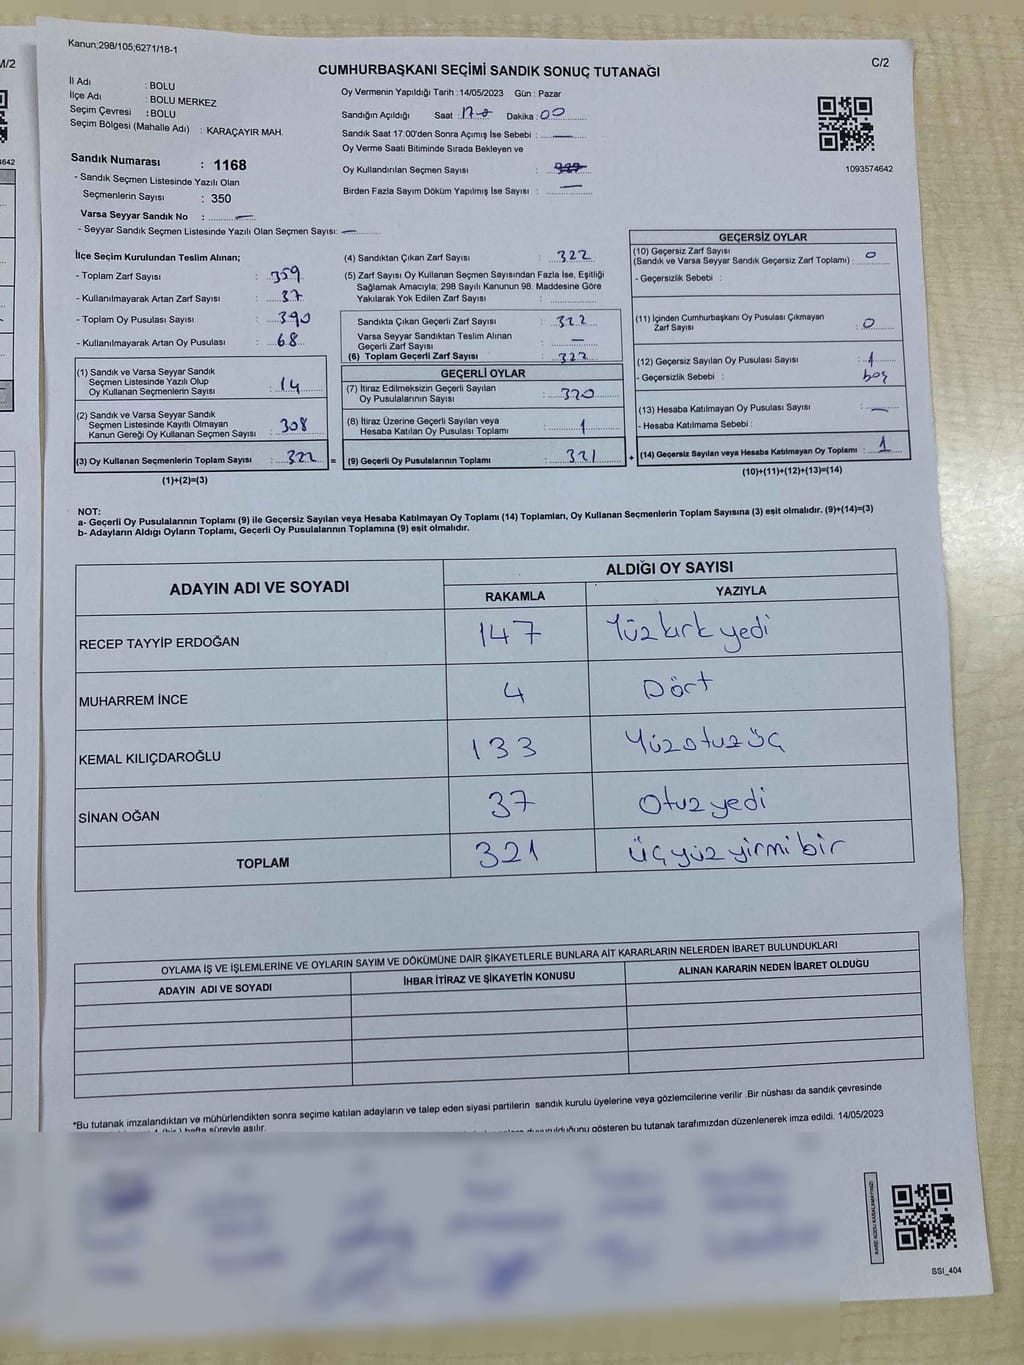 Kanun;298/105;6271/18-1
C/2
M/2
CUMHURBAŞKANI SEÇİMİ SANDIK SONUÇ TUTANAĞI
İl Adı : BOLU
İlçe Adı : BOLU MERKEZ
Seçim Çevresi : BOLU
Seçim Bölgesi (Mahalle Adı) : KARAÇAYIR MAH.
Oy Vermenin Yapıldığı Tarih : 14/05/2023 Gün : Pazar
Sandığın Açıldığı Saat : 17:0 Dakika : 00
Sandık Saat 17:00'den Sonra Açımış İse Sebebi : —
Oy Verme Saati Bitiminde Sırada Bekleyen ve
Oy Kullandırılan Seçmen Sayısı :
Birden Fazla Sayım Döküm Yapılmış İse Sayısı : —
1093574642
Sandık Numarası : 1168
- Sandık Seçmen Listesinde Yazılı Olan
Seçmenlerin Sayısı : 350
Varsa Seyyar Sandık No : —
- Seyyar Sandık Seçmen Listesinde Yazılı Olan Seçmen Sayısı: —
İlçe Seçim Kurulundan Teslim Alınan;
- Toplam Zarf Sayısı : 359
- Kullanılmayarak Artan Zarf Sayısı : 37
- Toplam Oy Pusulası Sayısı : 390
- Kullanılmayarak Artan Oy Pusulası : 68
(1) Sandık ve Varsa Seyyar Sandık
Seçmen Listesinde Yazılı Olup
Oy Kullanan Seçmenlerin Sayısı : 14
(2) Sandık ve Varsa Seyyar Sandık
Seçmen Listesinde Kayıtlı Olmayan
Kanun Gereği Oy Kullanan Seçmen Sayısı : 308
(3) Oy Kullanan Seçmenlerin Toplam Sayısı : 322 =
(1)+(2)=(3)
(4) Sandıktan Çıkan Zarf Sayısı : 322
(5) Zarf Sayısı Oy Kullanan Seçmen Sayısından Fazla İse, Eşitliği
Sağlamak Amacıyla; 298 Sayılı Kanunun 98. Maddesine Göre
Yakılarak Yok Edilen Zarf Sayısı :
Sandıkta Çıkan Geçerli Zarf Sayısı : 322
Varsa Seyyar Sandıktan Teslim Alınan
Geçerli Zarf Sayısı : —
(6) Toplam Geçerli Zarf Sayısı : 322
GEÇERLİ OYLAR
(7) İtiraz Edilmeksizin Geçerli Sayılan
Oy Pusulalarının Sayısı : 320
(8) İtiraz Üzerine Geçerli Sayılan veya
Hesaba Katılan Oy Pusulası Toplamı : 1
(9) Geçerli Oy Pusulalarının Toplamı : 321 +
GEÇERSİZ OYLAR
(10) Geçersiz Zarf Sayısı
(Sandık ve Varsa Seyyar Sandık Geçersiz Zarf Toplamı) : 0
- Geçersizlik Sebebi :
(11) İçinden Cumhurbaşkanı Oy Pusulası Çıkmayan
Zarf Sayısı : 0
(12) Geçersiz Sayılan Oy Pusulası Sayısı : 1
- Geçersizlik Sebebi : boş
(13) Hesaba Katılmayan Oy Pusulası Sayısı : —
- Hesaba Katılmama Sebebi :
(14) Geçersiz Sayılan veya Hesaba Katılmayan Oy Toplamı : 1
(10)+(11)+(12)+(13)=(14)
NOT:
a- Geçerli Oy Pusulalarının Toplamı (9) ile Geçersiz Sayılan veya Hesaba Katılmayan Oy Toplamı (14) Toplamları, Oy Kullanan Seçmenlerin Toplam Sayısına (3) eşit olmalıdır. (9)+(14)=(3)
b- Adayların Aldığı Oyların Toplamı, Geçerli Oy Pusulalarının Toplamına (9) eşit olmalıdır.
ADAYIN ADI VE SOYADI ALDIĞI OY SAYISI
RAKAMLA YAZIYLA
RECEP TAYYİP ERDOĞAN 147 Yüzkırkyedi
MUHARREM İNCE 4 Dört
KEMAL KILIÇDAROĞLU 133 Yüzotuzüç
SİNAN OĞAN 37 Otuzyedi
TOPLAM 321 üçyüzyirmibir
OYLAMA İŞ VE İŞLEMLERİNE VE OYLARIN SAYIM VE DÖKÜMÜNE DAİR ŞİKAYETLERLE BUNLARA AİT KARARLARIN NELERDEN İBARET BULUNDUKLARI
ADAYIN ADI VE SOYADI İHBAR İTİRAZ VE ŞİKAYETİN KONUSU ALINAN KARARIN NEDEN İBARET OLDUĞU
*Bu tutanak imzalandıktan ve mühürlendikten sonra seçime katılan adayların ve talep eden siyasi partilerin sandık kurulu üyelerine veya gözlemcilerine verilir .Bir nüshası da sandık çevresinde
hafta süreyle asılır.
duyurulduğunu gösteren bu tutanak tarafımızdan düzenlenerek imza edildi. 14/05/2023
SSI_404